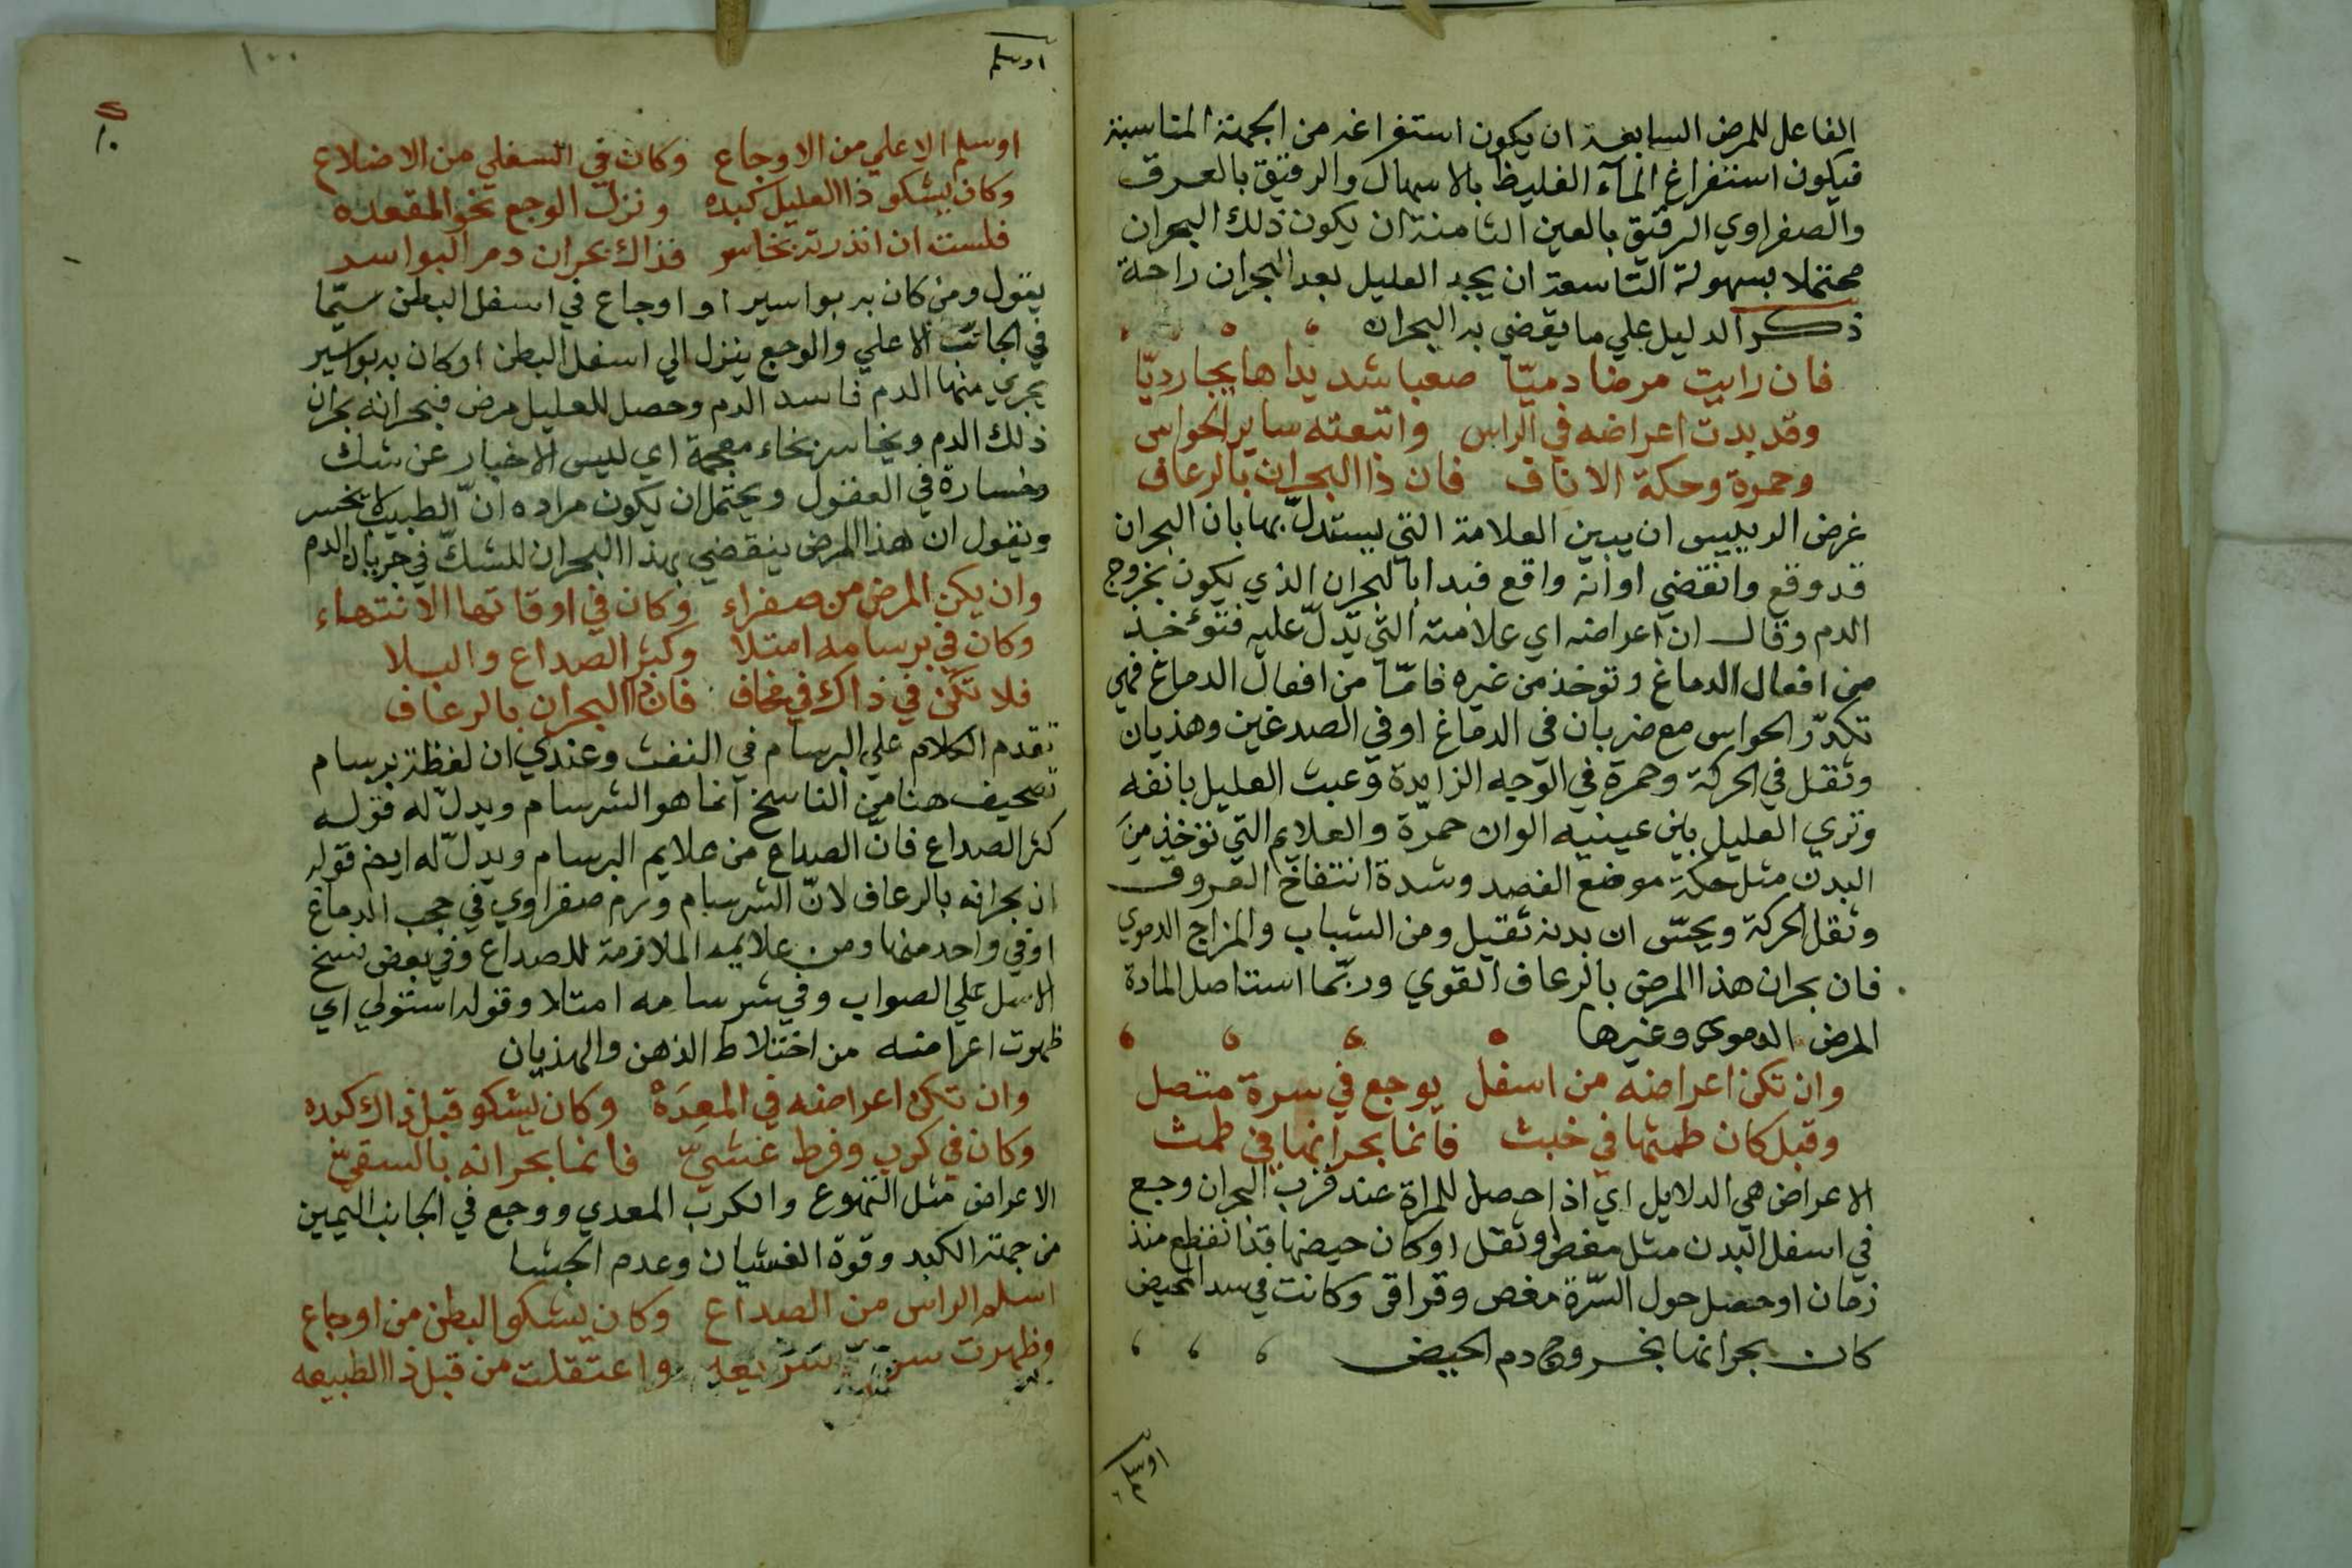 الفاعل للمرض السابعة ان يكون استفراغه من الجهة المناسبة
فيكون استفراغ المآء الغليظ بالاسهال والرقيق بالعرق
والصفراوي الرقيق بالعين الثامنة ان يكون ذلك البحران
محتملا بسهولة التاسعة ان يجد العليل بعد البحران راحة
ذكر الدليل علي ما يقضي به البحران
فان رايت مرضا دميّا صعبا شديدا هايجا رديّا
وقد بدت اعراضه في الراس واتبعته ساير الحواس
وحمرة وحكة الاناف فان ذا البحران بالرعاف
غرض الرييس ان يبين العلامة التي يستدلّ بها بان البحران
قد وقع وانقضي او انه واقع فبدا بالبحران الذي يكون بخروج
الدم وقال ان اعراضه اي علامته التي تدلّ عليه فتوٴخذ
من افعال الدماغ وتوخذ من غيره فامّا من افعال الدماغ فهي
تكدّر الحواس مع ضربان في الدماغ او في الصدغين وهذيان
وثقل في الحركة وحمرة في الوجه الزايدة وعبث العليل بانفه
وتري العليل بين عينيه الوان حمرّة والعلايم التي توخذ من
البدن مثل حكة موضع الفصد وشدة انتفاخ العروق
وثقل الحركة ويحسّ ان بدنه ثقيل ومن الشباب والمزاج الدموي
فان بحران هذا المرض بالرعاف القوي وربّما استاصل المادة
المرض الدموي وغيرها
وان تكن اعراضه من اسفل بوجع في سرة متصل
وقبل كان طمثها في خبث فانما بحرانها في طمث
الاعراض هي الدلايل اي اذا حصل للمراة عند قرب البحران وجع
في اسفل البدن مثل مغص وثقل او كان حيضها قد انقطع منذ
زمان او حصل حول السّرّة مغص وقراقر وكانت في سد الحيض
كان بحرانها بخروج دم الحيض
اوسلم
اوسلم
١٠٠
اوسلم الاعلي من الاوجاع وكان في السفلي من الاضلاع
وكان يشكو ذا العليل كبده ونزل الوجع نحو المقعده
فلست ان انذرته بخاسر فذاك بحران دم البواسر
يقول ومن كان به بواسير او اوجاع في اسفل البطن سيّما
في الجانب الاعلي والوجع ينزل الي اسفل البطن او كان به بواسير
يجري منها الدم فاسد الدم وحصل للعليل مرض فبحرانه بحران
ذلك الدم وبخاسر بخاء معجمة اي ليس الاخبار عن شك
وخسارة في العقول ويحتمل ان يكون مراده انّ الطبيب لا يخسر
ويقول ان هذا المرض ينقضي بهذا البحران للشكّ في جريان الدم
وان يكن المرض من صفراء وكان في اوقاتها الانتهاء
وكان في برسامه امتلا وكثر الصداع والبلا
فلا تكن في ذاك في مخاف فان ذا البحران بالرعاف
تقدم الكلام علي البرسام في النفث وعندي ان لفظة برسام
تصحيف هنا من الناسخ انما هو الشرسام ويدلّ له قوله
كثر الصداع فانّ الصداع من علايم البرسام ويدلّ له ايضا قوله
ان بحرانه بالرعاف لانّ الشرسام ورم صفراوي في حجب الدماغ
او في واحد منها ومن علايمه الملازمة للصداع وفي بعض نسخ
الاصل علي الصواب وفي شرسامه امتلا وقوله استولي اي
ظهرت اعراضه من اختلاط الذهن والهذيان
وان تكن اعراضه في المعِدَهْ وكان يشكو قبل ذاك كبده
وكان في كرب وفرط غشيّ فانما بحرانه بالقيّ
الاعراض مثل التهوع والكرب المعدي ووجع في الجانب اليمين
من جهة الكبد وقوة الغشيان وعدم الجشا
اسلم الراس من الصداع وكان يشكو البطن من اوجاع
وظهرت سريعه واعتقلت من قبل ذا الطبيعه